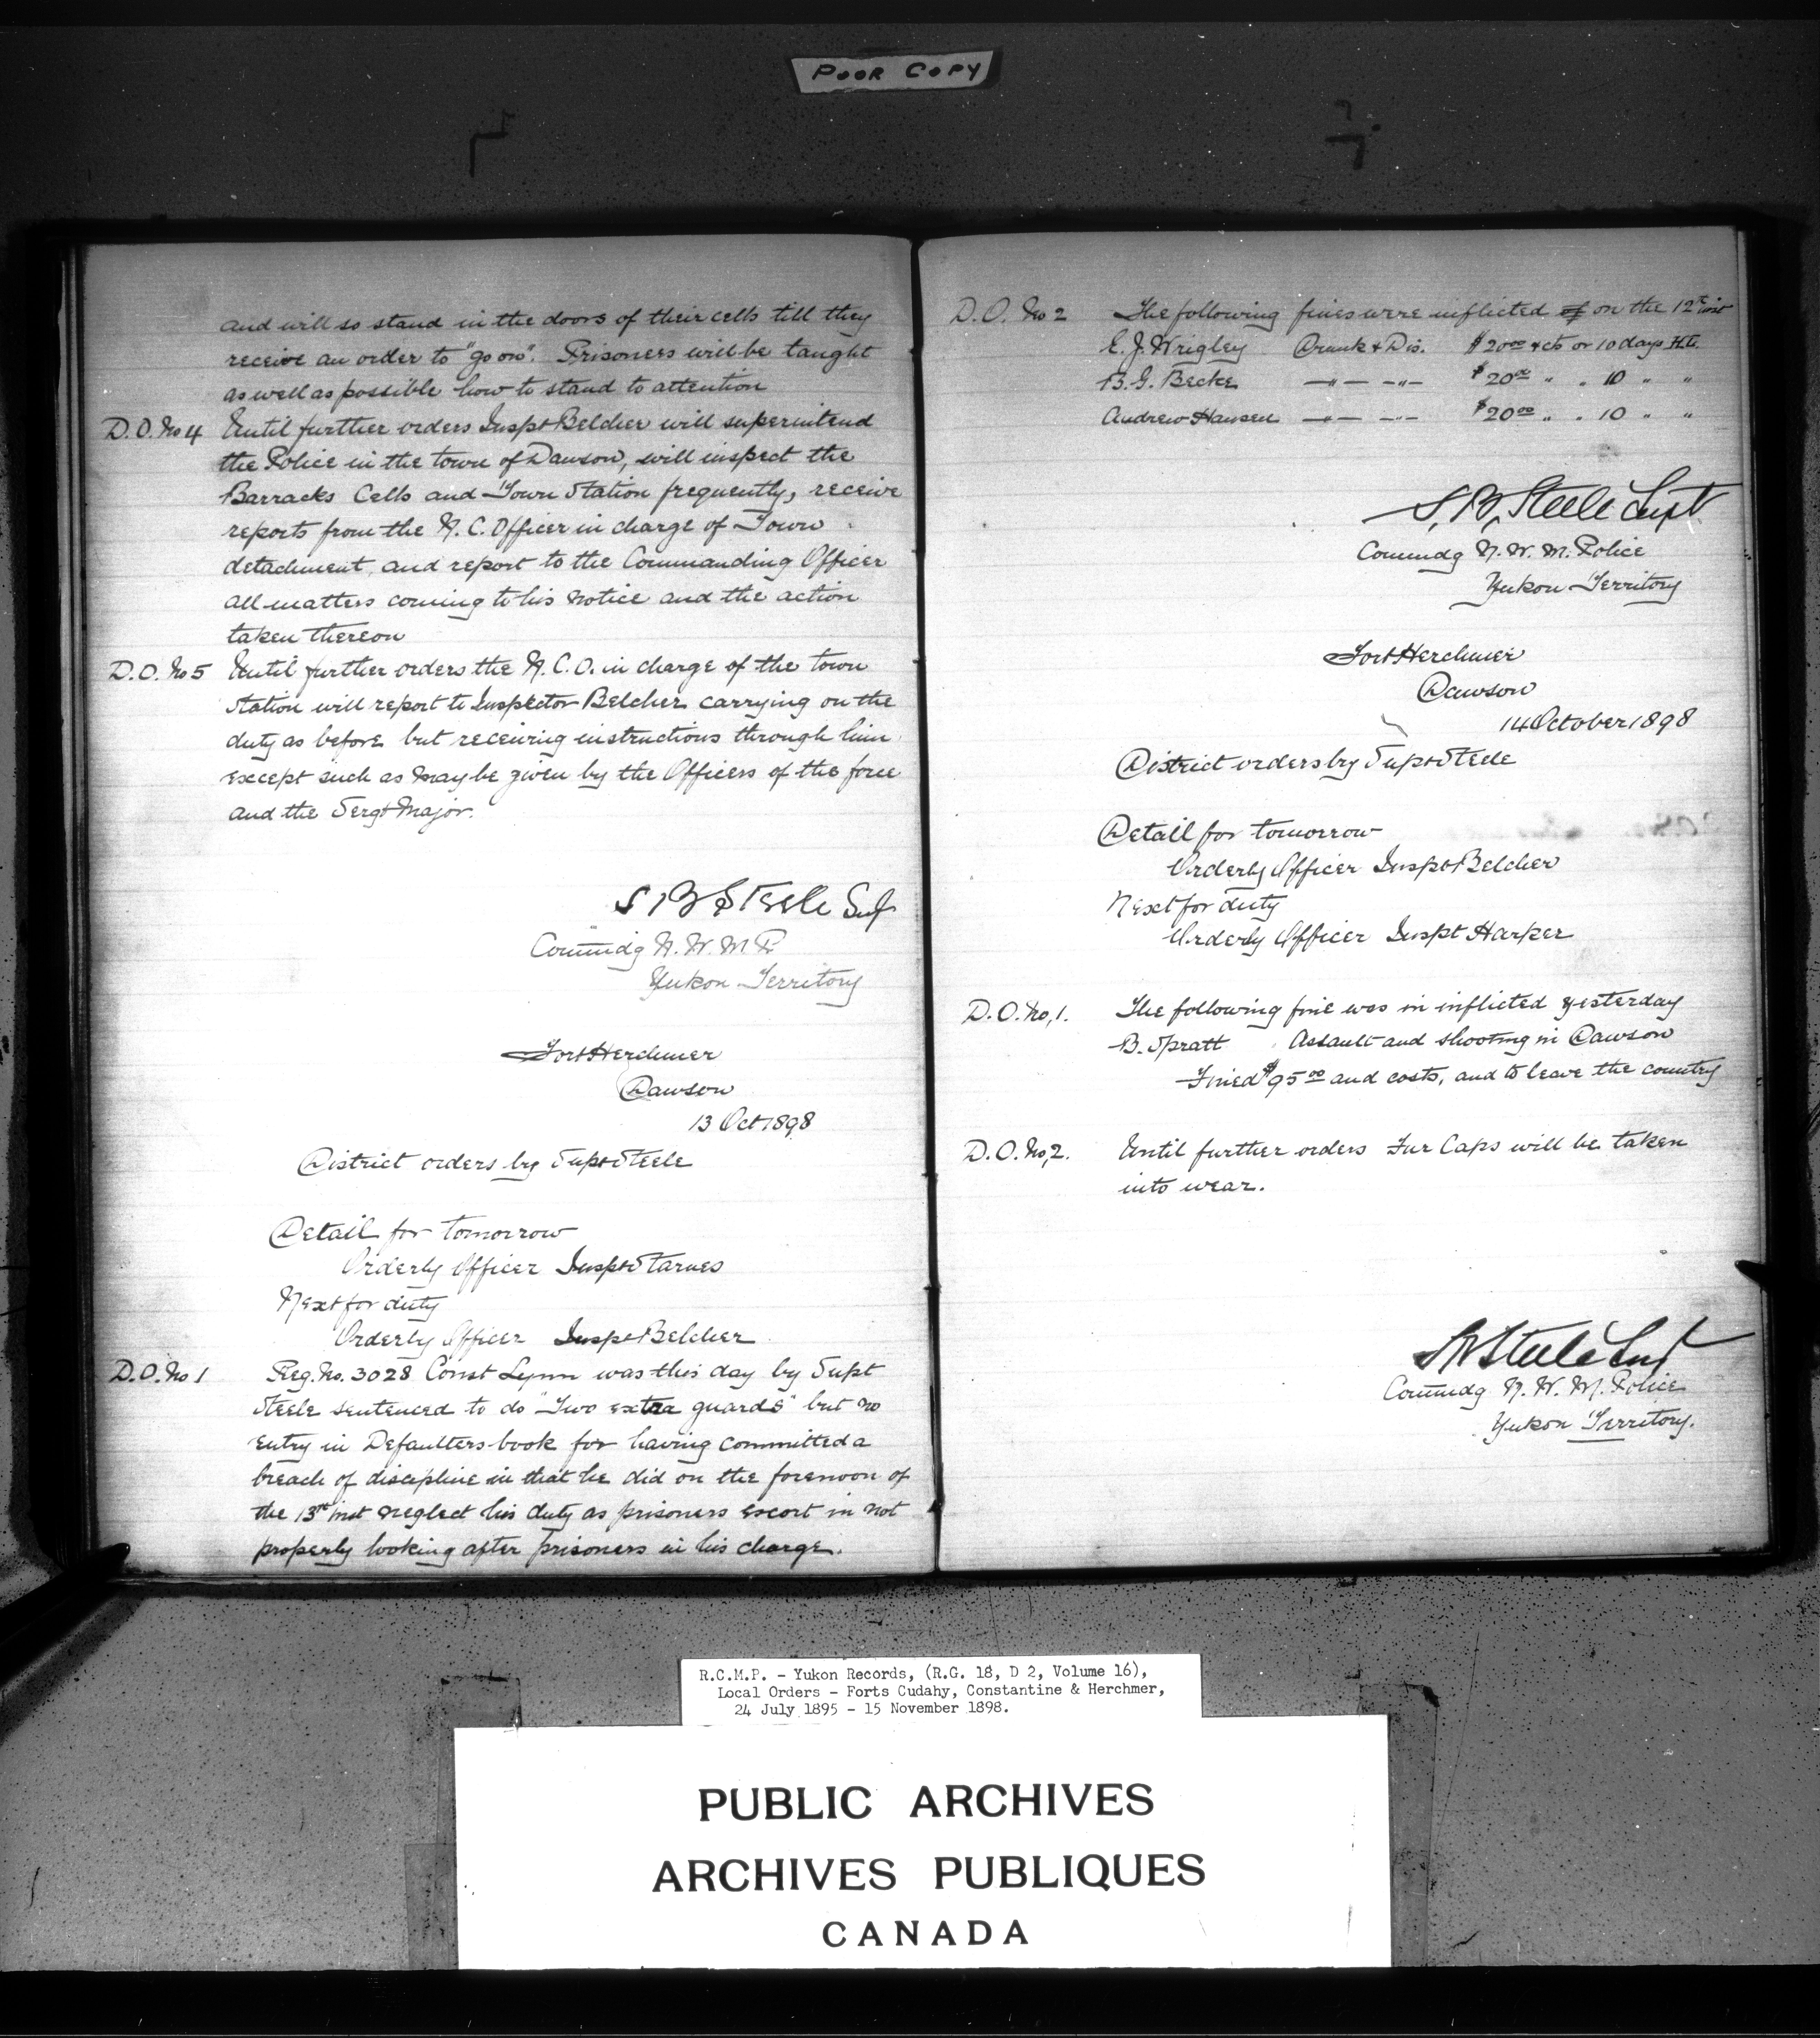 POOR COPY
and will so stand in the doors of their cells till they
receive an order to "go on". Prisoners will be taught
as well as possible how to stand to attention
D.O. No 4 Until further orders Inspt Belcher will superintend
the Police in the town of Dawson, will inspect the
Barracks Cells and Town Station frequently, receive
reports from the N.C. Officer in charge of Town
detachment, and report to the Commanding Officer
all matters coming to his notice and the action
taken thereon
D.O. No 5 Until further orders the N.C.O. in charge of the town
Station will report to Inspector Belcher carrying on the
duty as before but receiving instructions through him
except such as may be given by the Officers of the force
and the Sergt Major.
S B Steele Sup
Commdg N.W.M.P
Yukon Territory
Fort Herchmer
Dawson
13 Oct 1898
District orders by Supt Steele
Detail for tomorrow
Orderly Officer Inspt Starnes
Next for duty
Orderly Officer Inspt Belcher
D.O. No 1 Reg. No. 3028 Const Lynn was this day by Supt
Steele sentenced to do "Two extra guards" but no
entry in Defaulters book for having committed a
breach of discipline in that he did on the forenoon of
the 13th inst neglect his duty as prisoners escort in not
properly looking after prisoners in his charge.
D.O. No 2 The following fines were inflicted of on the 12th inst
E.J. Wrigley Drunk & Dis. $20 00 & cts or 10 days H.L.
B.G. Becke —"— —"— $20 00 " " 10 " "
Andrew Hansen —"— —"— $20 00 " " 10 " "
S.B. Steele Supt
Commdg N.W.M. Police
Yukon Territory
Fort Herchmer
Dawson
14 October 1898
District orders by Supt Steele
Detail for tomorrow
Orderly Officer Inspt Belcher
Next for duty
Orderly Officer Inspt Harper
D.O. No, 1. The following fine was in inflicted yesterday
B. Spratt Assault and shooting in Dawson
Fined $95 00 and costs, and to leave the country
D.O. No, 2. Until further orders Fur Caps will be taken
into wear.
S B Steele Supt
Commdg N.W.M. Police
Yukon Territory.
R.C.M.P. - Yukon Records, (R.G. 18, D 2, Volume 16),
Local Orders - Forts Cudahy, Constantine & Herchmer,
24 July 1895 - 15 November 1898.
PUBLIC ARCHIVES
ARCHIVES PUBLIQUES
CANADA